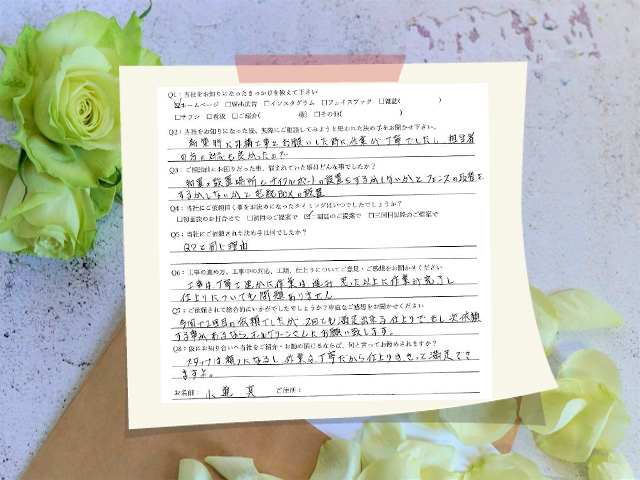 Q1:当社をお知りになったきっかけを教えて下さい
☑ホームページ □Web広告 □インスタグラム □フェイスブック □雑誌( )
□チラシ □看板 □ご紹介( 様) □その他( )
Q2:当社をお知りになった後、実際にご相談してみようと思われた決め手をお聞かせ下さい。
新築時に外構工事をお願いした時に作業が丁寧でしたし、担当者
の方の対応も良かったので
Q3:ご相談前にお困りだった事、悩まれていた事はどんな事でしたか?
設置場所と サイクルポートの設置をするかしないかと フェンスの設置を
するかしないかと宅配BOXの設置
Q4:当社にご依頼頂く事をお決めになったタイミングはいつでしたでしょうか?
□初面談のお打合せで □初回のご提案で ☑二回目のご提案で □三回目以降のご提案で
Q5:当社にご依頼された決め手は何でしたか?
Q2と同じ理由
Q6:工事の進め方、工事中の対応、工期、仕上りについてご意見・ご感想をお聞かせください
工事は丁寧で速やかに作業は進み 思った以上に作業が完了し
仕上りについても問題ありません
Q7:ご依頼されて総合的にいかがでしたでしょうか?率直なご感想をお聞かせください
今回で2回目の依頼でしたが 2回とも満足出来る仕上りでもし次依頼
する事があるなら にお願い致します。
Q8:仮にお知り合いへ当社をご紹介・お勧め頂けるならば、何と言ってお勧めされますか?
スタッフは頼りになるし、作業は丁寧だから仕上りもきっと満足でき
ますよ。
お名前: 小 ご住所: